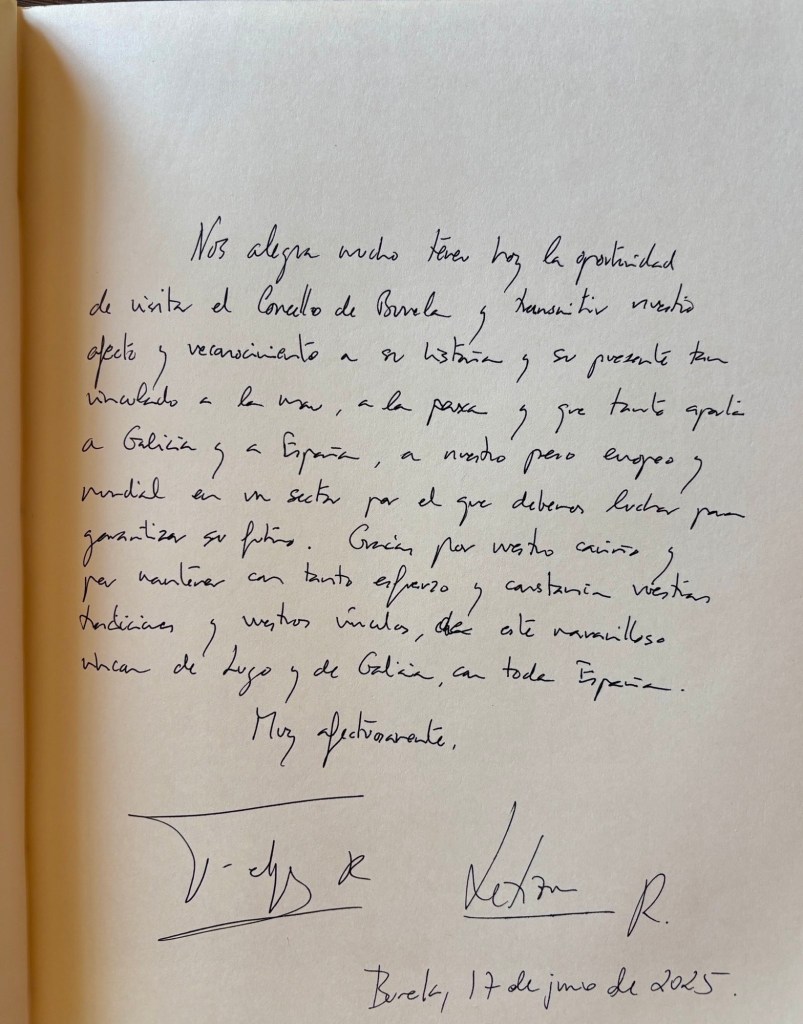 Nos alegra mucho tener hoy la oportunidad
de visitar el Concello de Burela y transmitir nuestro
afecto y reconocimiento a su historia y su presente tan
vinculado a la mar, a la pesca y que tanto aporta
a Galicia y a España, a nuestro peso europeo y
mundial en un sector por el que debemos luchar para
garantizar su futuro. Gracias por vuestro cariño y
por mantener con tanto esfuerzo y constancia vuestras
tradiciones y vuestros vínculos, de este maravilloso
rincon de Lugo y de Galicia, con toda España.
Muy afectuosamente,
Felipe R Letizia R.
Burela, 17 de junio de 2025.